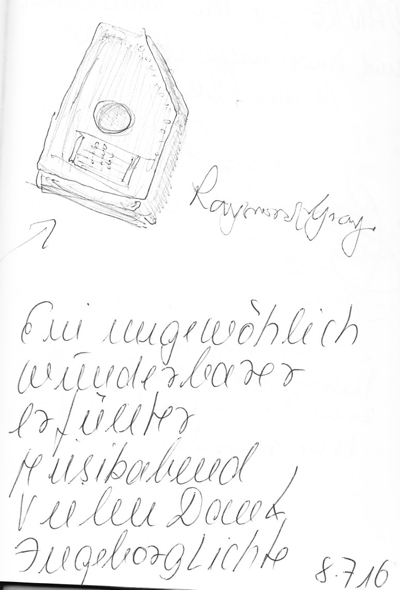 Raymond Gray
Ein ungewöhlich
wunderbarer
erfüllter
Musikabend
Vielen Dank
Ingeborg Lichte
8.7.16